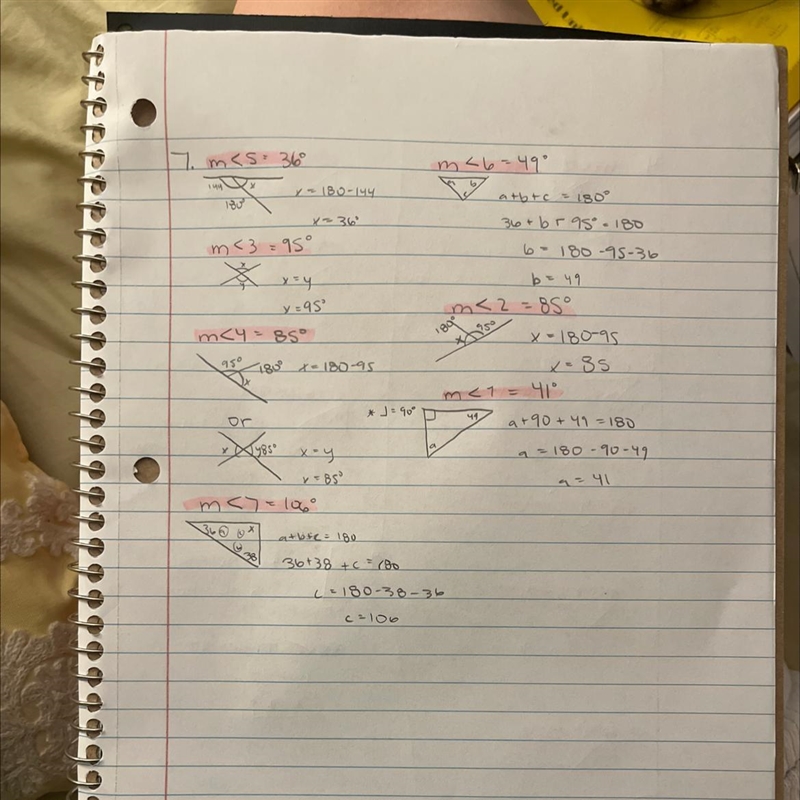 7. m<5 = 36°
144 x
180°
x = 180-144
x = 36°
m<6 = 49°
a b
c
a+b+c = 180°
36 + b + 95° = 180
b = 180 - 95 - 36
b = 49
m<3 = 95°
x
y
x = y
x = 95°
m<2 = 85°
180° 95°
x
x = 180-95
x = 85
m<4 = 85°
95° 180°
x
x = 180-95
or
x y85°
x = y
x = 85°
m<1 = 41°
* ┘= 90°
49
a
a + 90 + 49 = 180
a = 180 - 90 - 49
a = 41
m<7 = 106°
36 x
38
a+b+c = 180
36+38 + c = 180
c = 180-38-36
c = 106